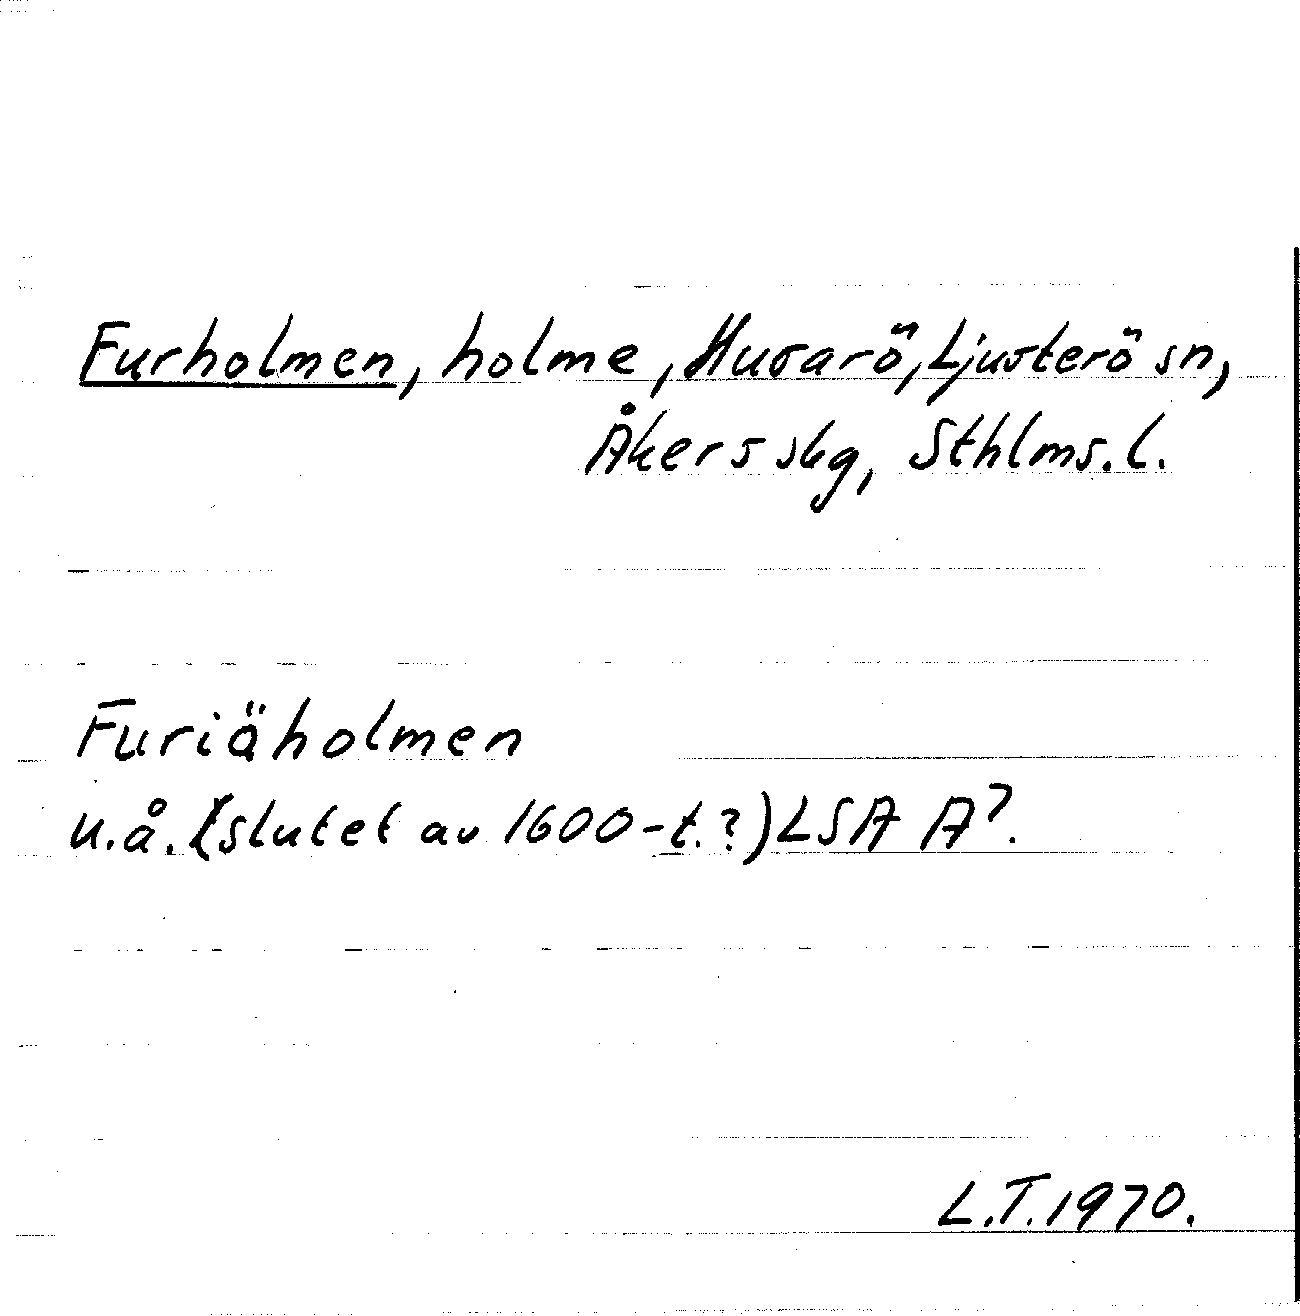 Furholmen, holme, Husarö, Ljusterö sn,
Åkers skg, Sthlms. l.
Furiäholmen
u.å. (slutet av 1600-t.?) LSA A7.
L.T. 1970.